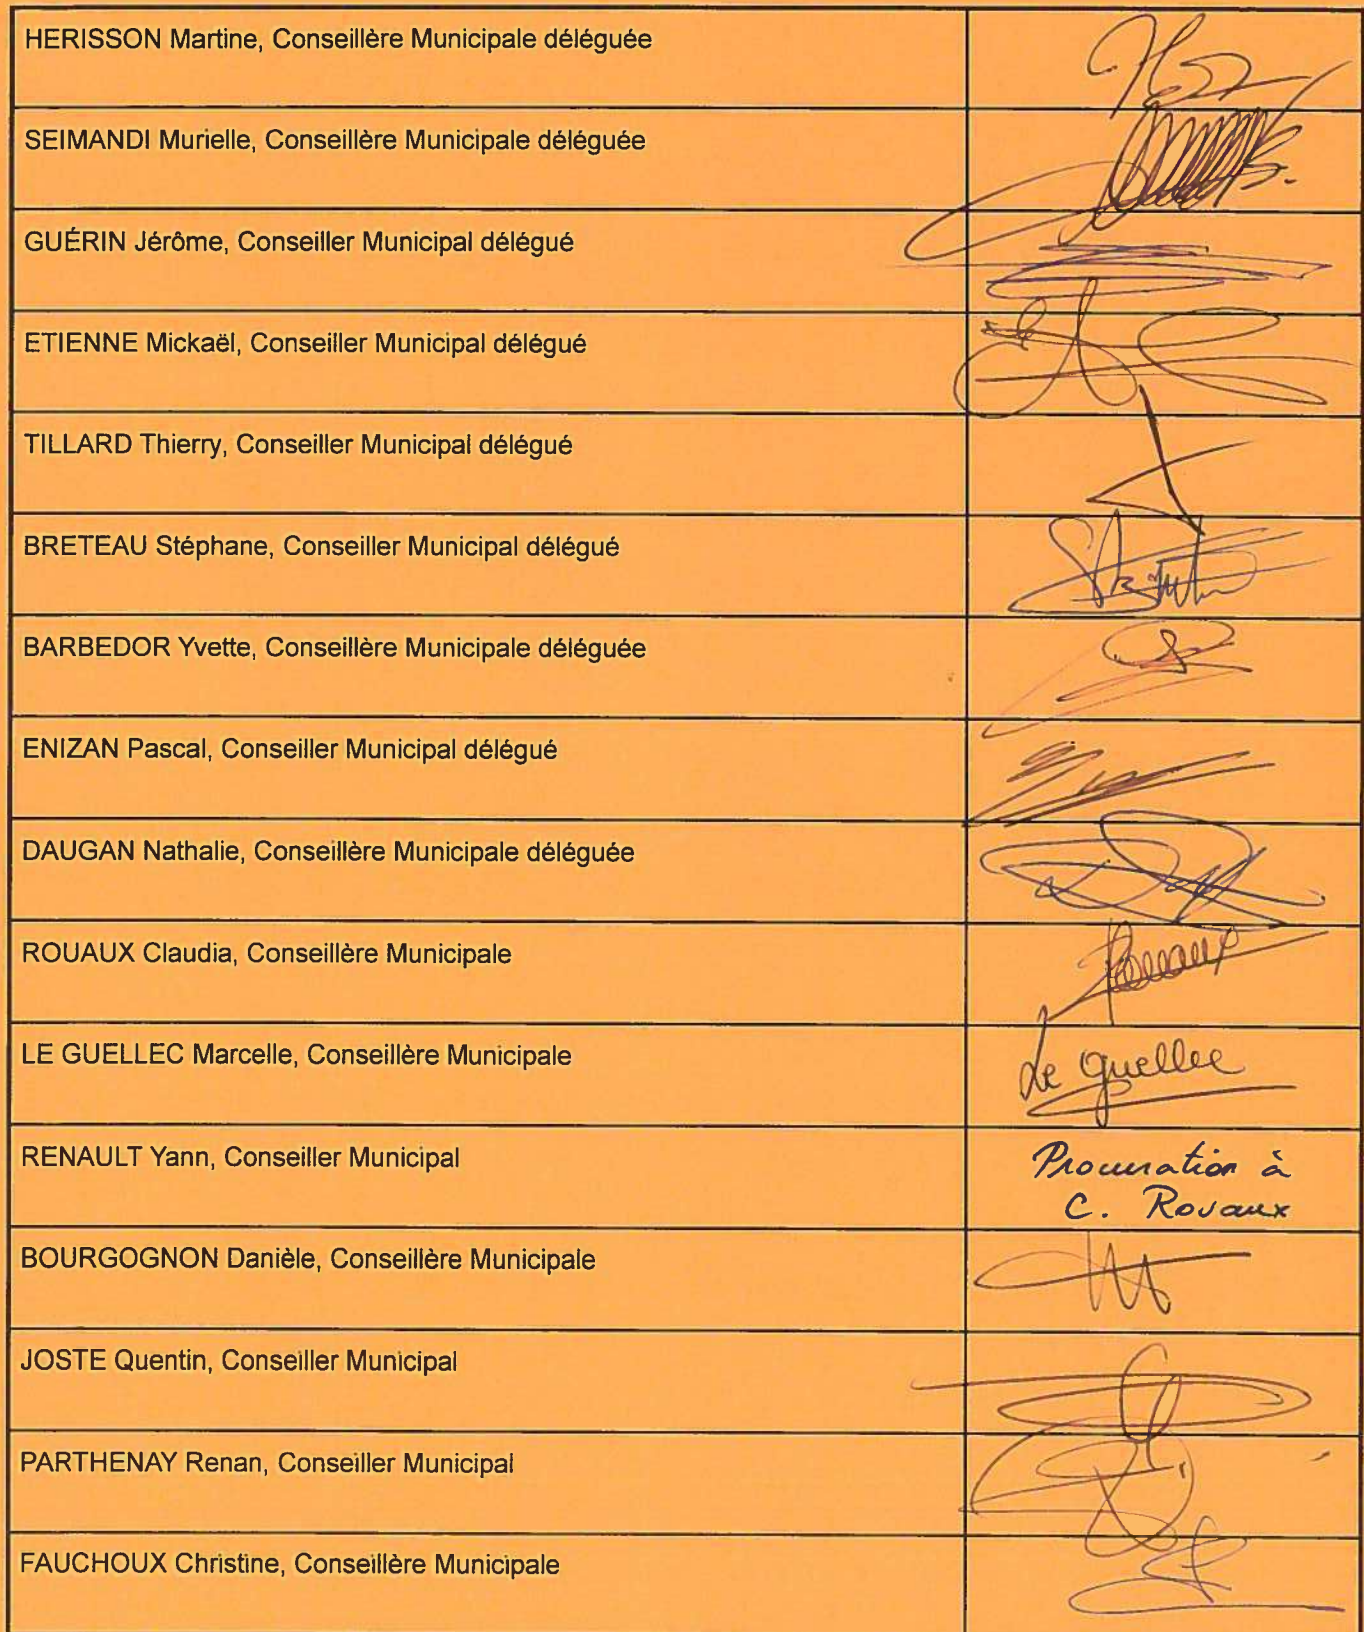 HERISSON Martine, Conseillère Municipale déléguée
SEIMANDI Murielle, Conseillère Municipale déléguée
GUÉRIN Jérôme, Conseiller Municipal délégué
ETIENNE Mickaël, Conseiller Municipal délégué
TILLARD Thierry, Conseiller Municipal délégué
BRETEAU Stéphane, Conseiller Municipal délégué
BARBEDOR Yvette, Conseillère Municipale déléguée
ENIZAN Pascal, Conseiller Municipal délégué
DAUGAN Nathalie, Conseillère Municipale déléguée
ROUAUX Claudia, Conseillère Municipale
Rouaux
LE GUELLEC Marcelle, Conseillère Municipale
Le Guellec
RENAULT Yann, Conseiller Municipal
Procuration à
C. Rouaux
BOURGOGNON Danièle, Conseillère Municipale
JOSTE Quentin, Conseiller Municipal
PARTHENAY Renan, Conseiller Municipal
FAUCHOUX Christine, Conseillère Municipale